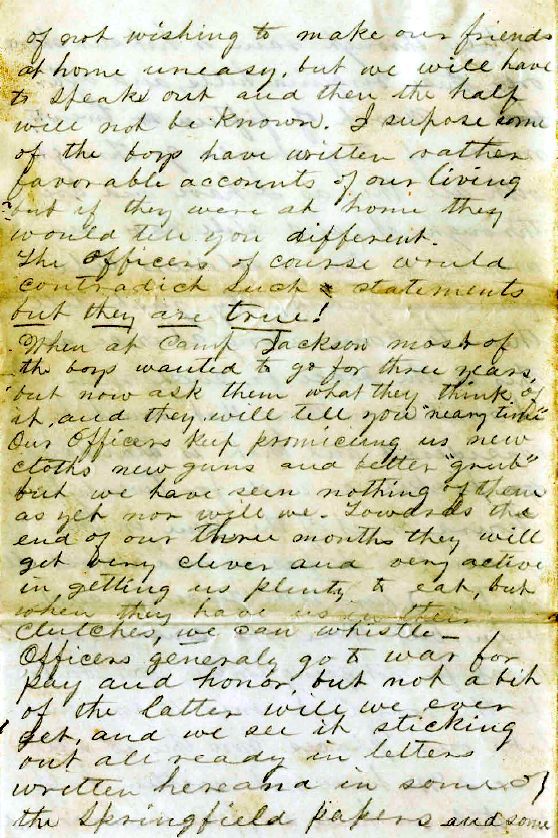 of not wishing to make our friends
at home uneasy, but we will have
to speak out and then the half
will not be known. I supose some
of the boys have written rather
favorable accounts of our living
but if they were at home they
would tell you different.
The Officers of course would
contradict such statements
but they are true!
When at Camp Jackson most of
the boys wanted to go for three years,
but now ask them what they think of
it, and they will tell you "neary time"
Our Officers kep promicing us new
cloths new guns and better "grub"
but we have seen nothing of them
as yet nor will we. Towards the
end of our three months they will
get very clever and very active
in getting us plenty to eat, but
when they have us in their
clutches, we can whistle –
Officers generaly go to war for
pay and honor, but not a bit
of the latter will we ever
get, and we see it sticking
out all ready in letters
written here and in some of
the Springfield papers and some